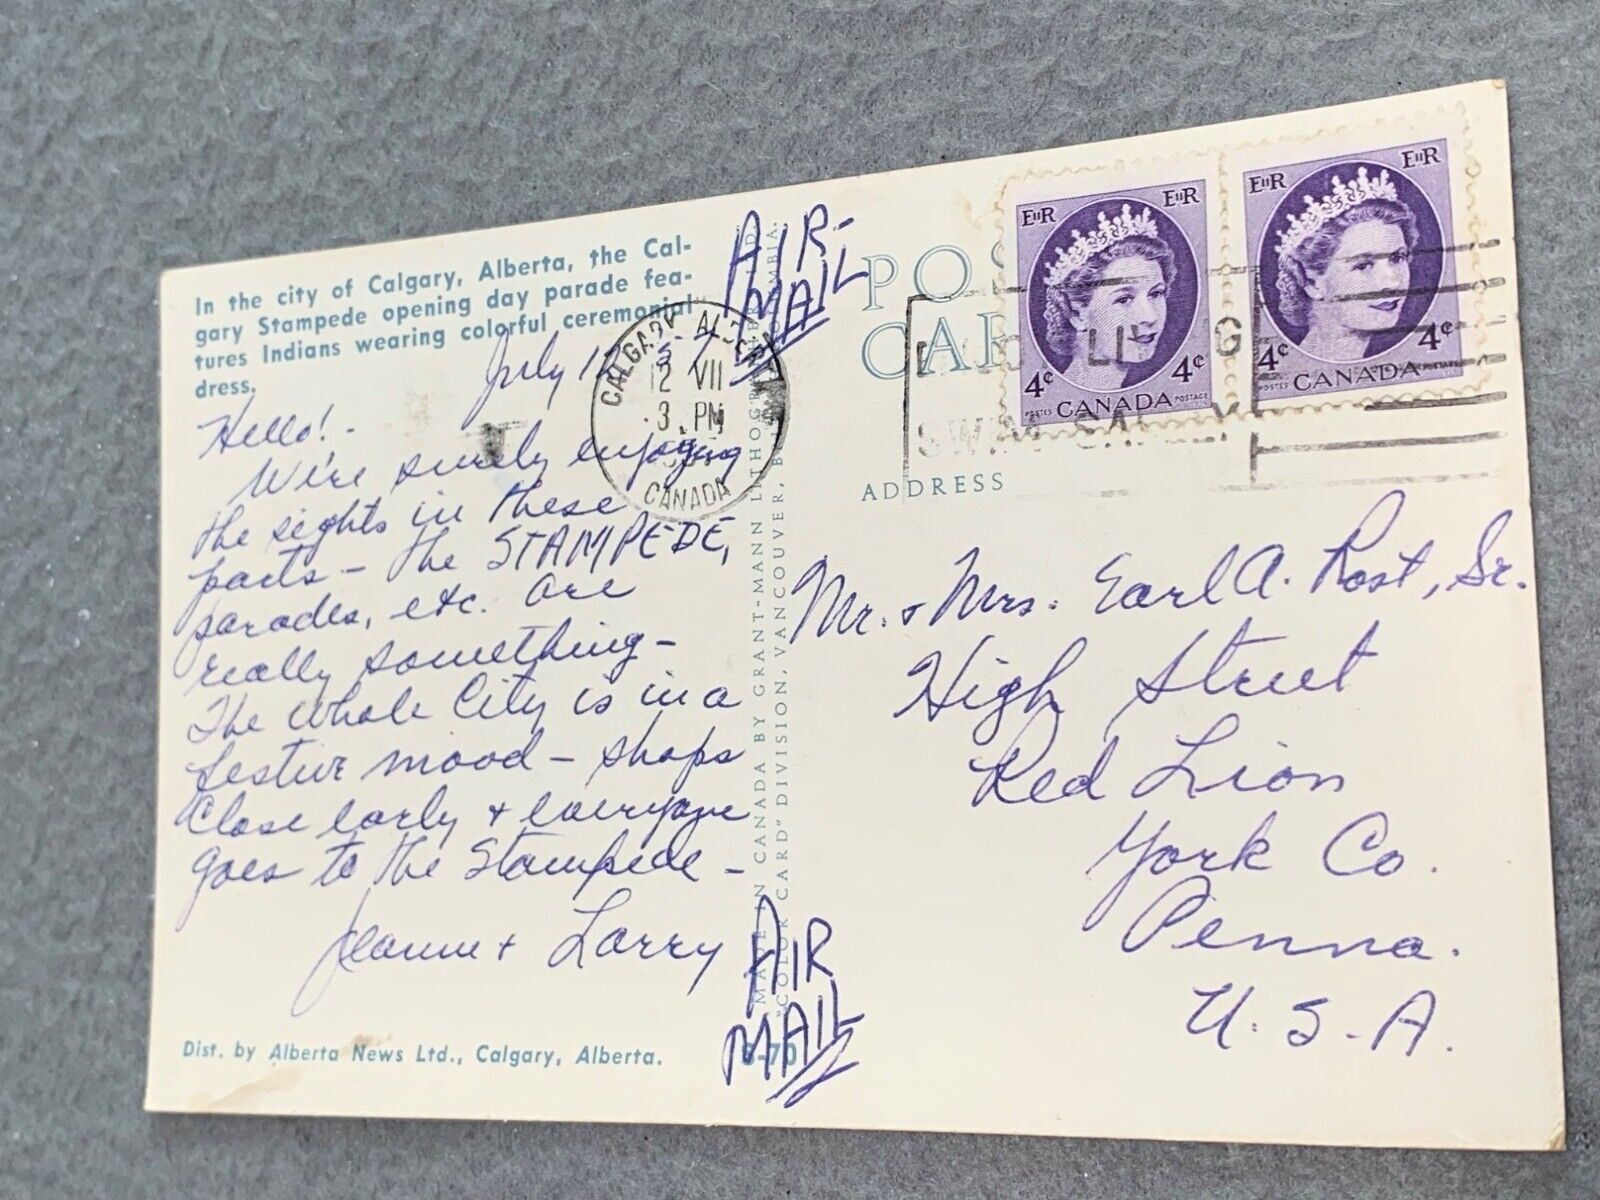 In the city of Calgary, Alberta, the Cal-
gary Stampede opening day parade fea-
tures Indians wearing colorful ceremonial
dress.
July 12
Hello! -
We're surely enjoying
the sights in these
parts - the STAMPEDE,
parades, etc. are
really something -
The whole City is in a
festive mood - shops
close early + everyone
goes to the Stampede -
Jeanne + Larry
Dist. by Alberta News Ltd., Calgary, Alberta.
CALGARY ALBERTA
12 VII
3 PM
CANADA
AIR-
MAIL
MADE IN CANADA BY GRANT-MANN LITHOGRAPHERS LTD.
"COLOR CARD" DIVISION, VANCOUVER, BRITISH COLUMBIA.
AIR
MAIL
S-70
POST
CARD
EIIR EIIR
4¢ 4¢
POSTES CANADA POSTAGE
EIIR EIIR
4¢ 4¢
POSTES CANADA POSTAGE
SWIM SAFELY
ADDRESS
Mr. + Mrs. Earl A. Rost, Sr.
High Street
Red Lion
York Co.
Penna.
U.S.A.